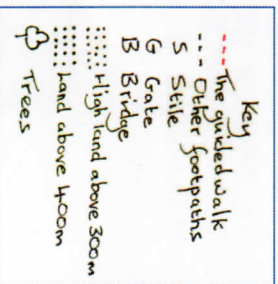 Key
--- The guided walk
--- Other footpaths
S Stile
G Gate
B Bridge
High land above 300m
Land above 400m
Trees